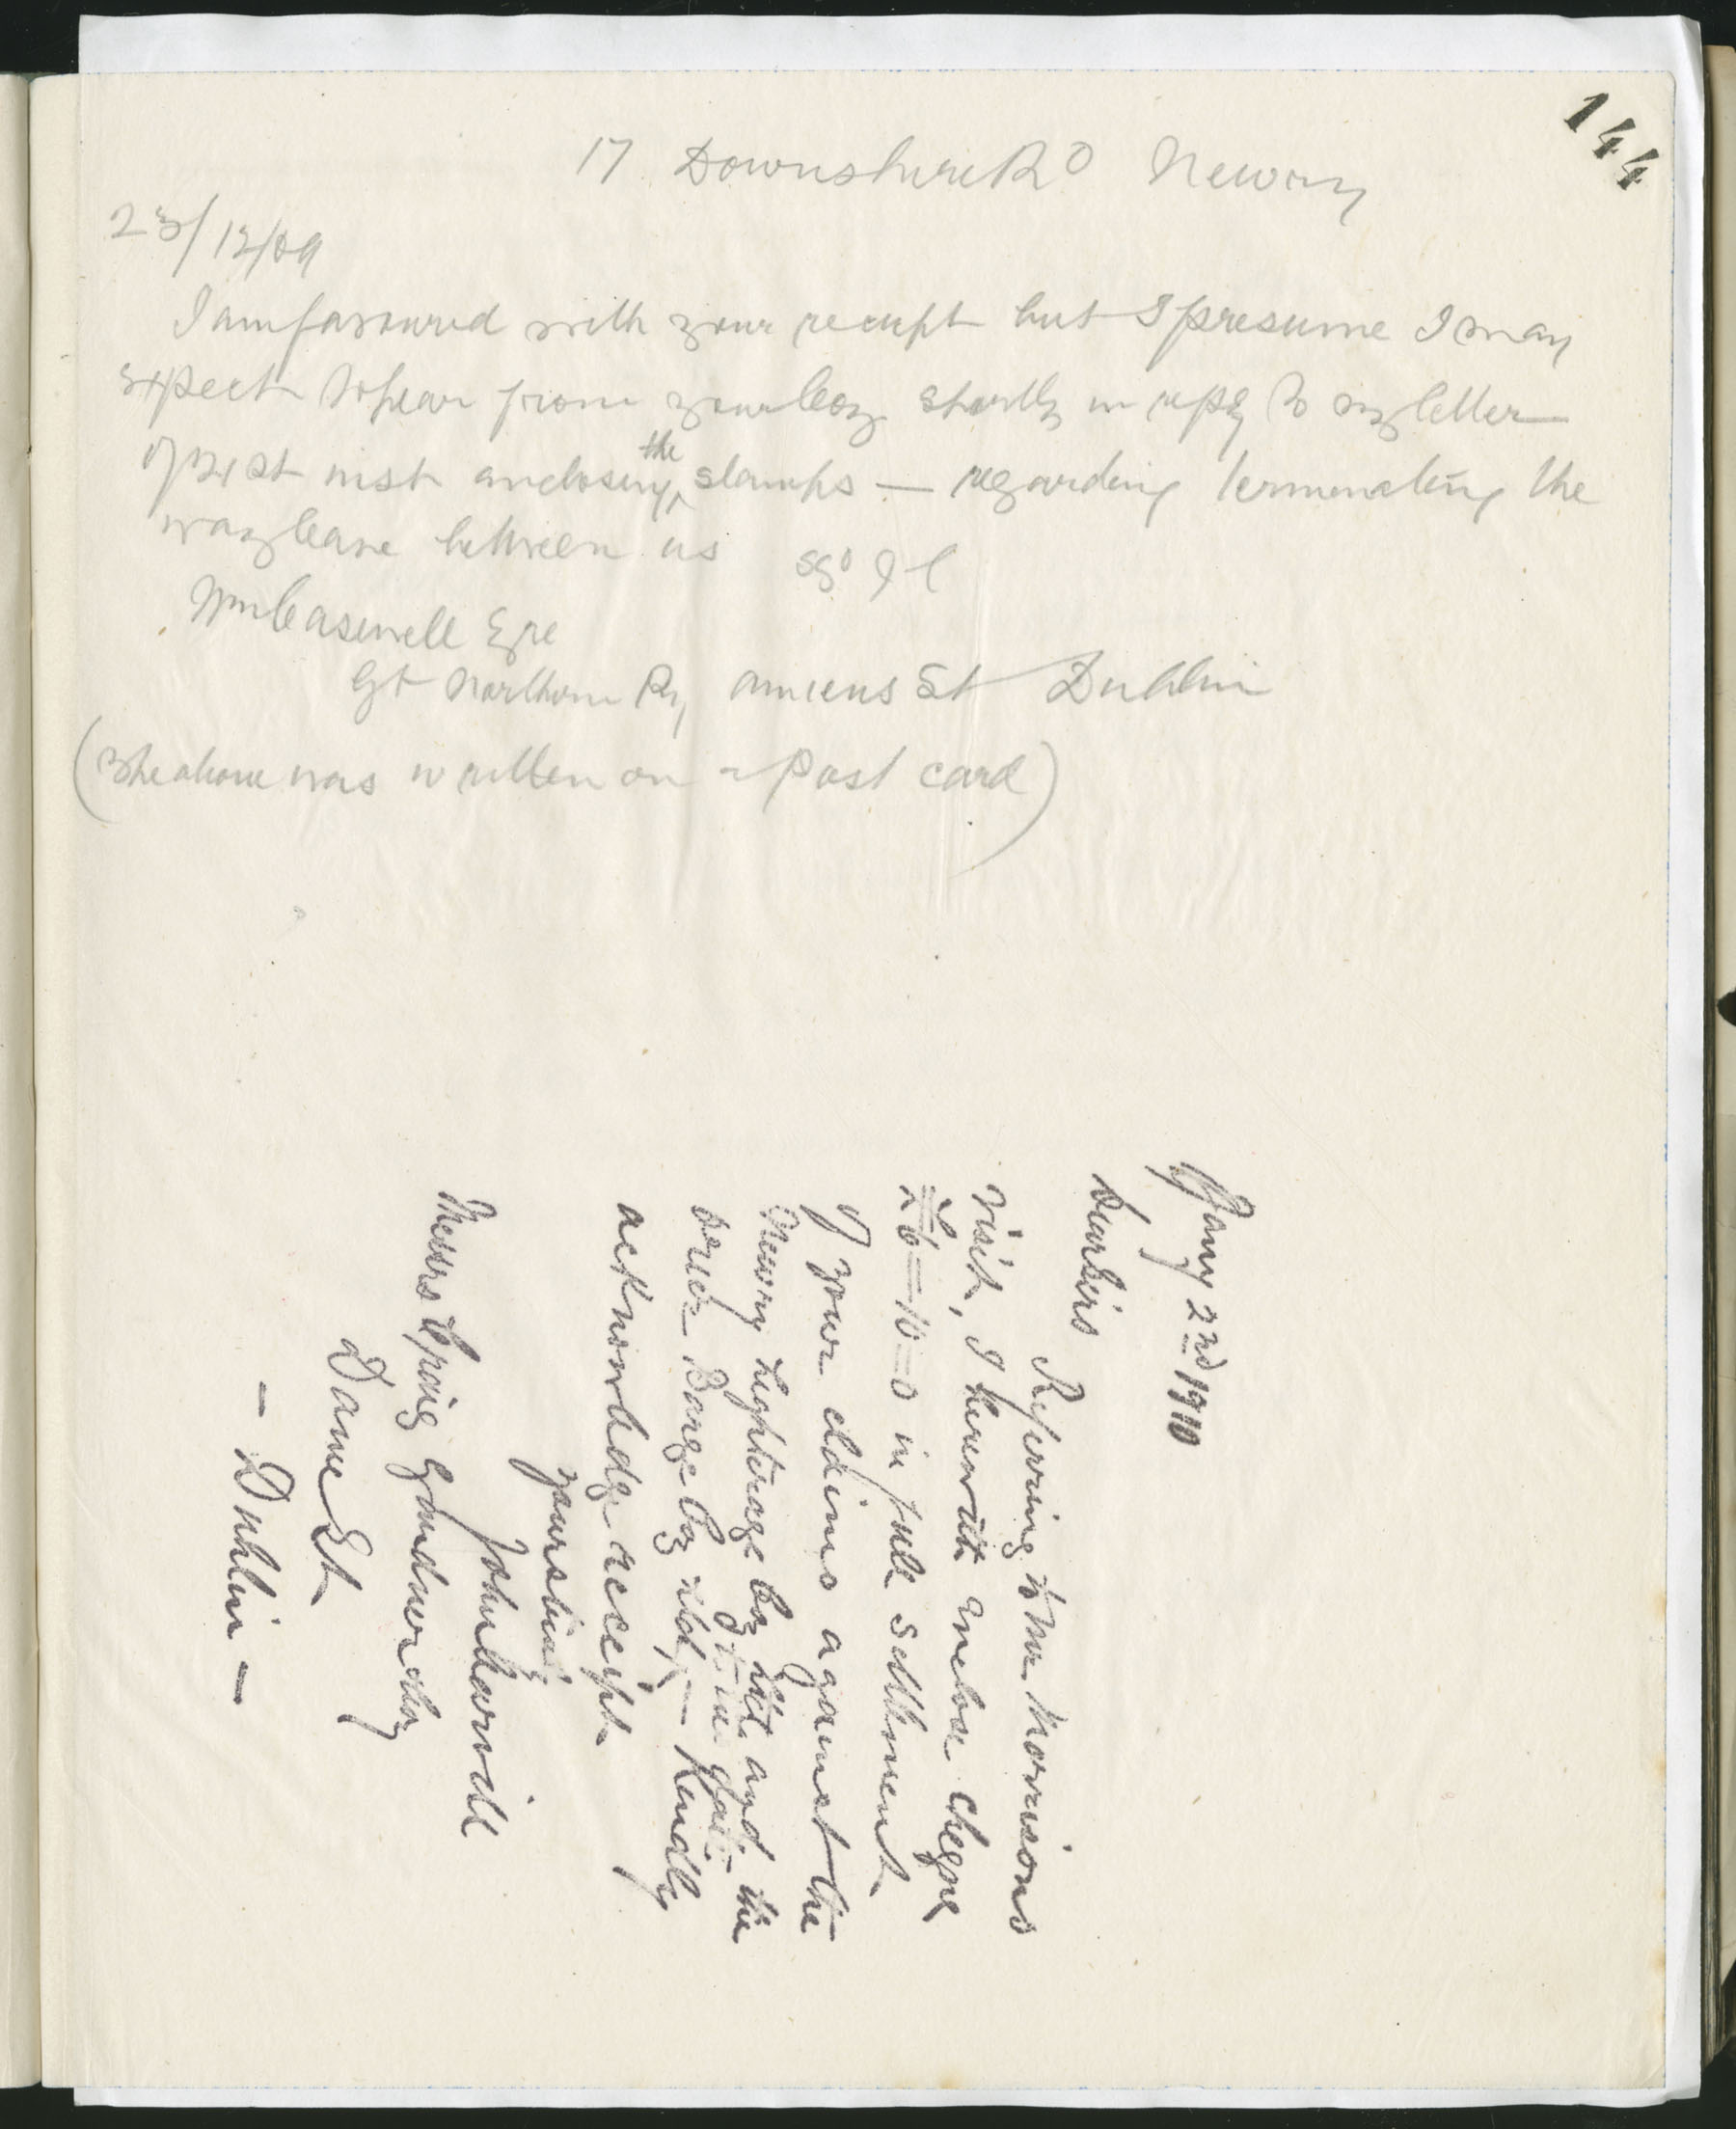 144
17 Downshire Rd Newry
23/12/09
I am favoured with your receipt but I presume I may
expect to hear from your Coy shortly in reply to my letter
of 21st inst enclosing the stamps — regarding terminating the
wayleave between us sgd J C
Wm Casewell Esqre
Gt Northern Ry Amiens St Dublin
(The above was written on a Post card)
Jany 2nd 1910
Dear Sirs
Referring to Mr Morrisons
visit, I herewith enclose cheque
£6-10-0 in full settlement
of your claims against the
Newry Lighterage Coy Ltd and the
Barge Coy Ltd — Kindly
acknowledge receipt
yours truly
John Carvill
Messrs Craig Gardner & Coy
Dame St
- Dublin -